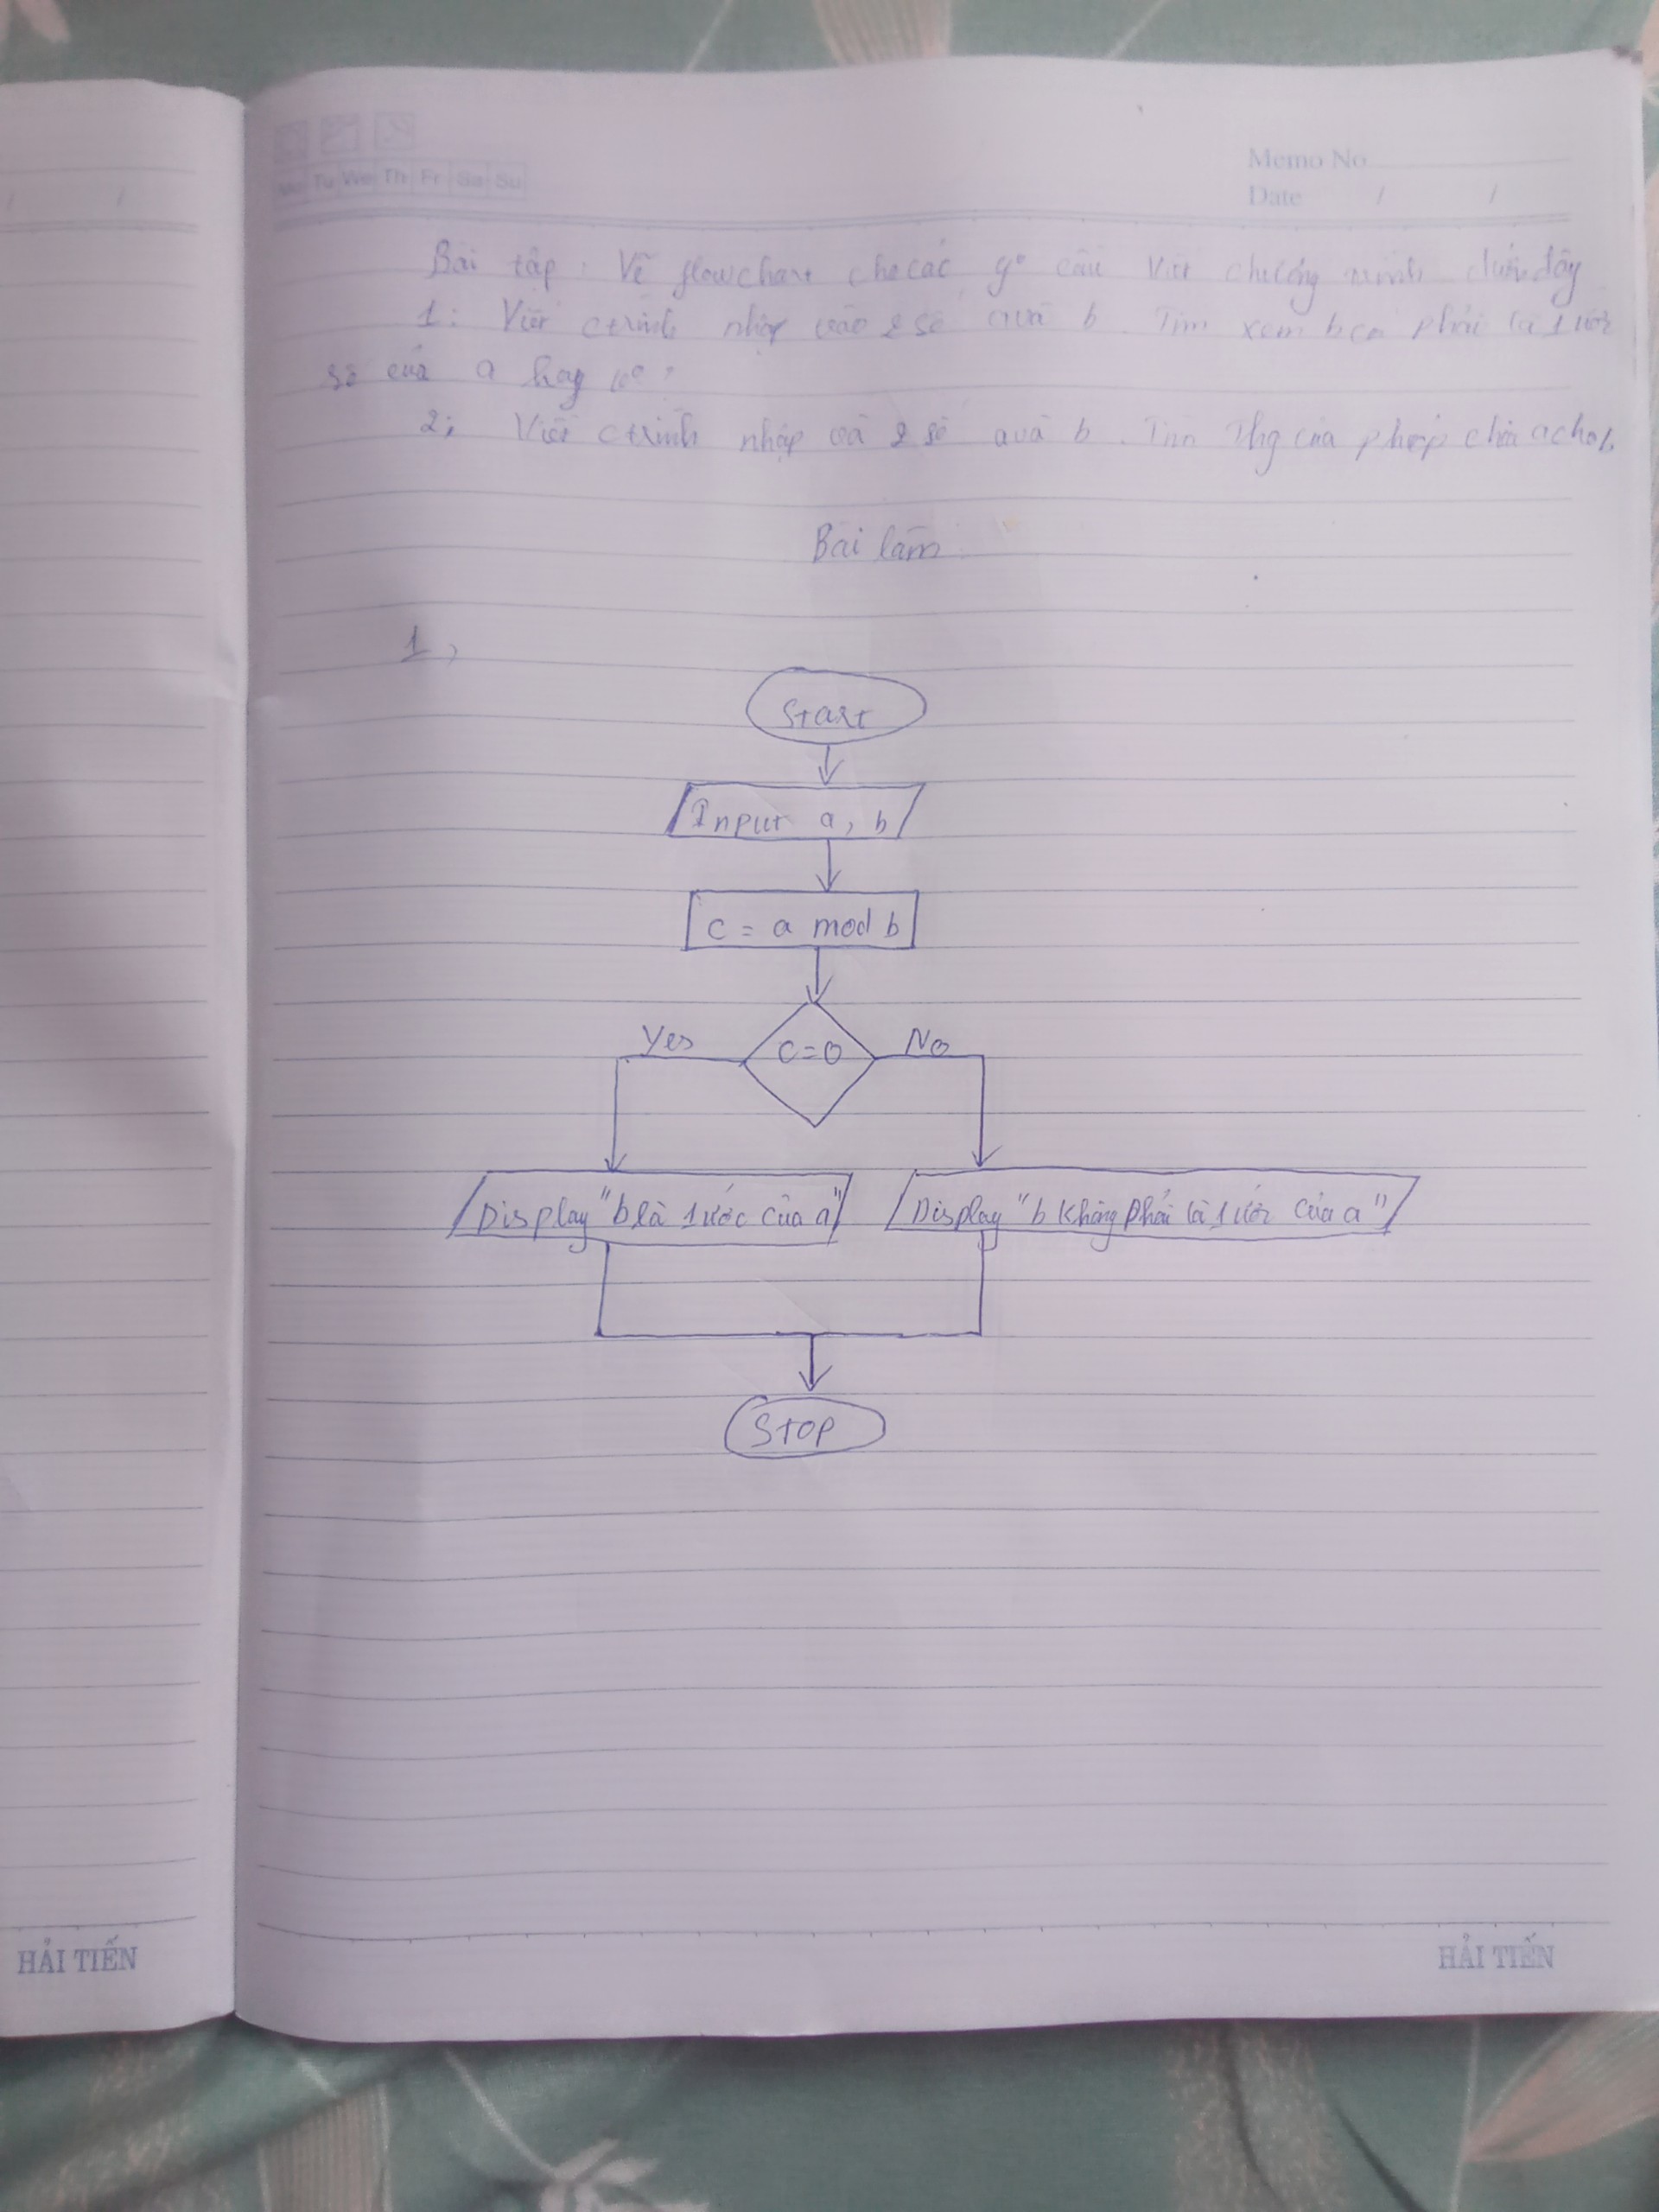 Tu We Th Fr Sa Su
Memo No
Date / /
Bài tập : Vẽ flowchart cho các yº cầu viết chương trình dưới đây
1: Viết ctrình nhập vào 2 số a và b. Tìm xem b có phải là 1 ước
số của a hay kº ?
2; Viết ctrình nhập và 2 số a và b. Tìm Thg của phép chia a cho b
Bài làm:
1,
Start
Input a, b
c = a mod b
Yes c=0 No
Display "b là 1 ước của a" Display "b không phải là 1 ước của a"
Stop
HẢI TIẾN HẢI TIẾN